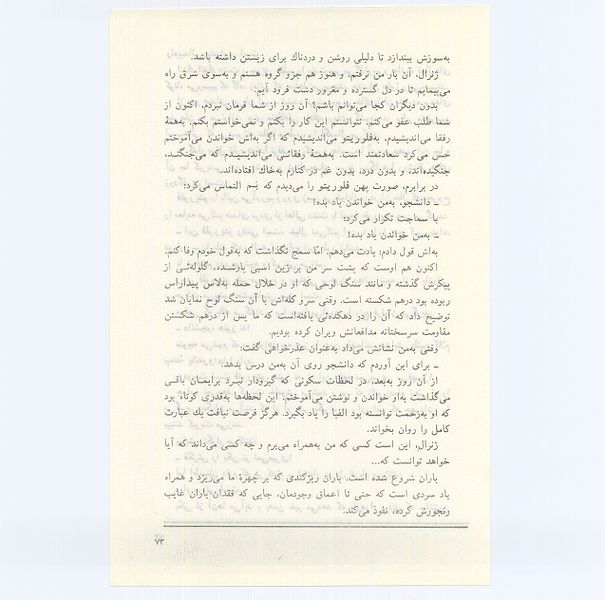 به‌سوزش بیندازد تا دلیلی روشن و دردناك برای زیستن داشته باشد.
ژنرال، آن بار من نرفتم، و هنوز هم جزو گروه هستم و به‌سوی شرق راه
می‌پیمایم تا در دل گسترده و مغرور دشت فرود آیم.
بدون دیگران کجا می‌توانم باشم؟ آن روز از شما فرمان نبردم، اکنون از
شما طلب عفو می‌کنم. نتوانستم این کار را بکنم و نمی‌خواستم بکنم. به‌همهٔ
رفقا می‌اندیشیدم، به‌فلوریتو می‌اندیشیدم که اگر به‌اش خواندن می‌آموختم
حس می‌کرد سعادتمند است. به‌همهٔ رفقائی می‌اندیشیدم که می‌جنگند،
جنگیده‌اند، و بدون درد، بدون غم در کنارم به‌خاك افتاده‌اند.
در برابرم، صورت پهن فلوریتو را می‌دیدم که به‌م التماس می‌کرد:
ـ دانشجو، به‌من خواندن یاد بده!
با سماجت تکرار می‌کرد:
ـ به‌من خواندن یاد بده!
به‌اش قول دادم: یادت می‌دهم. امّا سمج نگذاشت که به‌قول خودم وفا کنم.
اکنون هم اوست که پشت سر من بر زین اسبی بارشده، گلوله‌ئی از
پیکرش گذشته و مانند سنگ لوحی که او در خلال حمله به‌لاس پیداراس
ربوده بود درهم شکسته است. وقتی سرو کله‌اش با آن سنگ لوح نمایان شد
توضیح داد که آن را در دهکده‌ئی یافته‌است که ما پس از درهم شکستن
مقاومت سرسختانه مدافعانش ویران کرده بودیم.
وقتی به‌من نشانش می‌داد به‌عنوان عذرخواهی گفت:
ـ برای این آوردم که دانشجو روی آن به‌من درس بدهد.
از آن روز به‌بعد، در لحظات سکونی که گیرودار نبرد برایمان باقی
می‌گذاشت به‌او خواندن و نوشتن می‌آموختم. این لحظه‌ها به‌قدری کوتاه بود
که او به‌زحمت توانسته بود الفبا را یاد بگیرد. هرگز فرصت نیافت یك عبارت
کامل را روان بخواند.
ژنرال، این است کسی که من به‌همراه می‌برم و چه کسی می‌داند که آیا
خواهد توانست که...
باران شروع شده است. باران ریزکندی که بر چهرهٔ ما می‌ریزد و همراه
باد سردی است که حتی تا اعماق وجودمان، جایی که فقدان باران غایب
ورنجورش کرده، نفوذ می‌کند.
۷۳